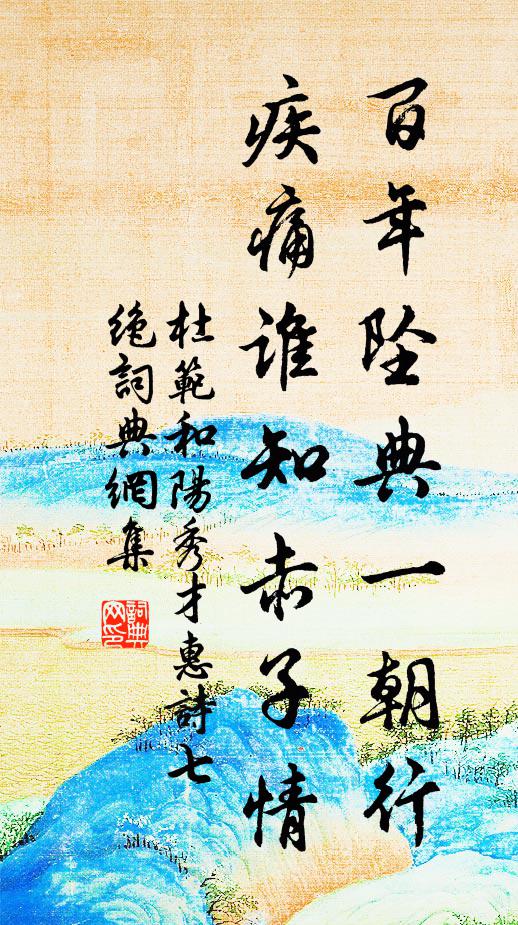 百年坠典一朝行
疾痛谁知赤子情
杜範和陽秀才惠詩七
絶詞典網集
詞典
网印